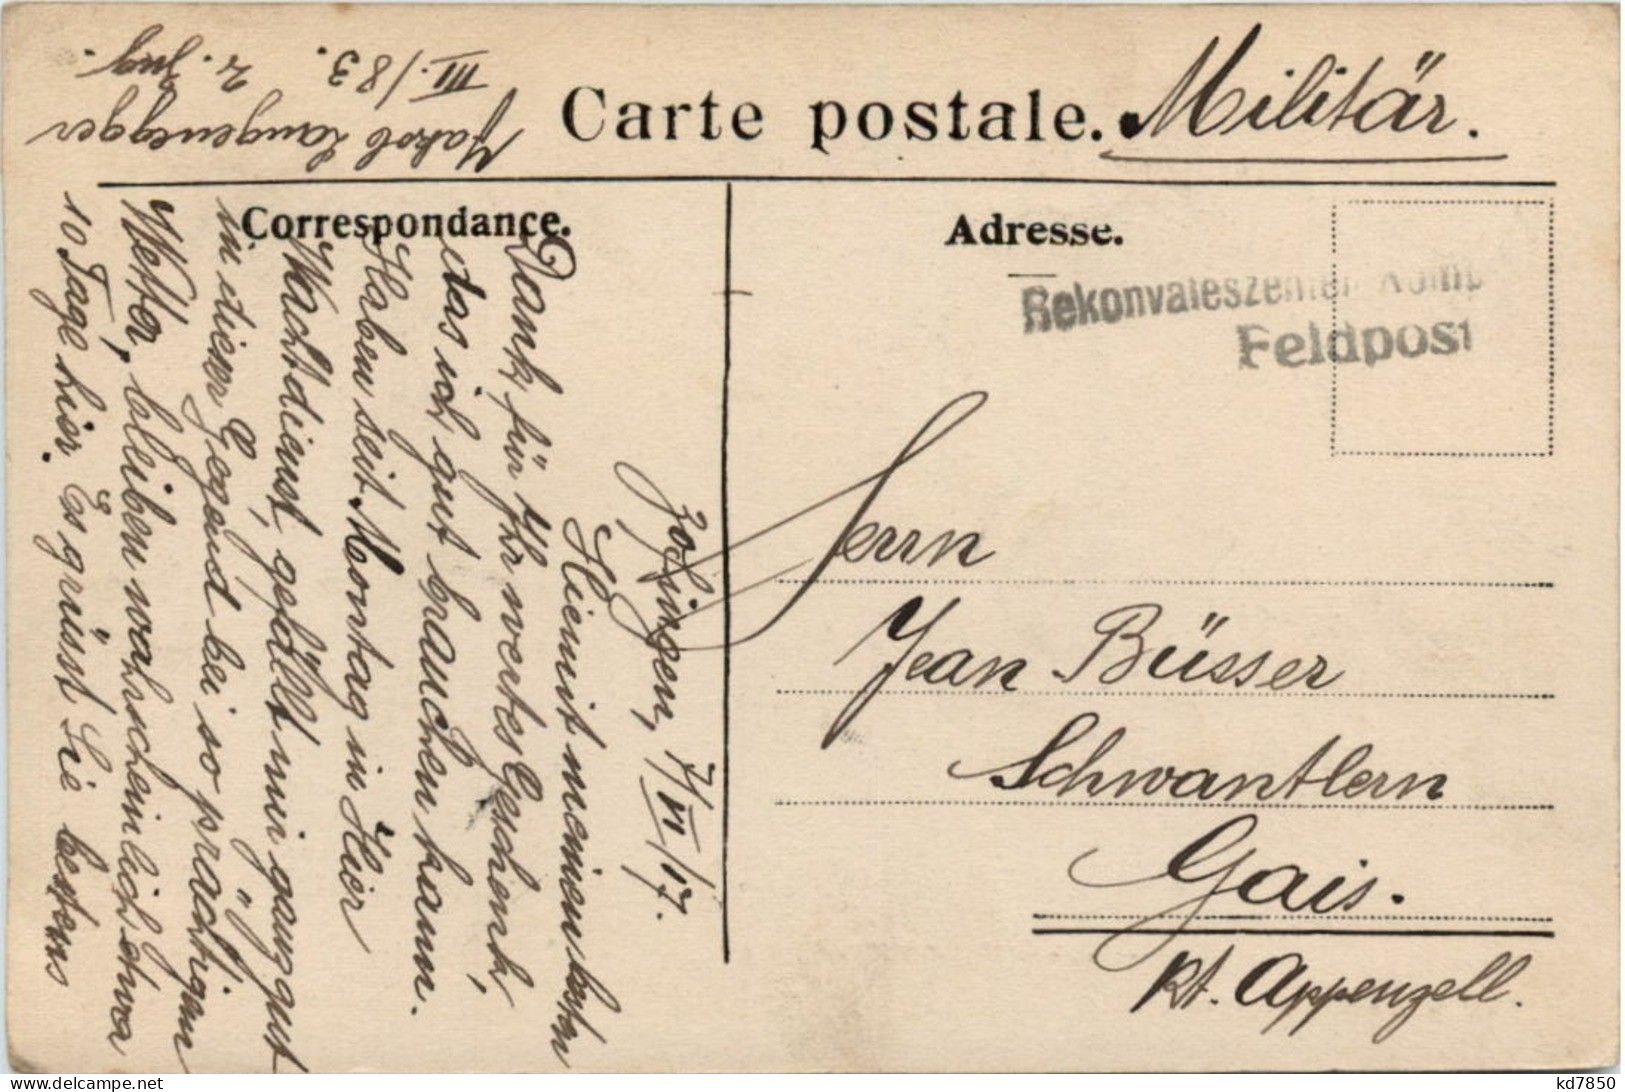 Carte postale. Militär.
Correspondance.
Adresse.
Rekonvaleszenten Komp
Feldpost
Herrn
Jean Büsser
Schwantlern
Gais.
Kt. Appenzell.
Zofingen, 7/VI/17.
Hiemit meinen besten
Dank, für Ihr wertes Geschenk,
das ich gut brauchen kann.
Haben seit Montag in Hier
Wachtdienst, gefällt mir ganz gut
in dieser Gegend bei so prächtigem
Wetter, bleiben wahrscheinlich etwa
10 Tage hier. Es grüsst Sie bestens
Jakob Langenegger
III./83. 2. Zug.
kd7850